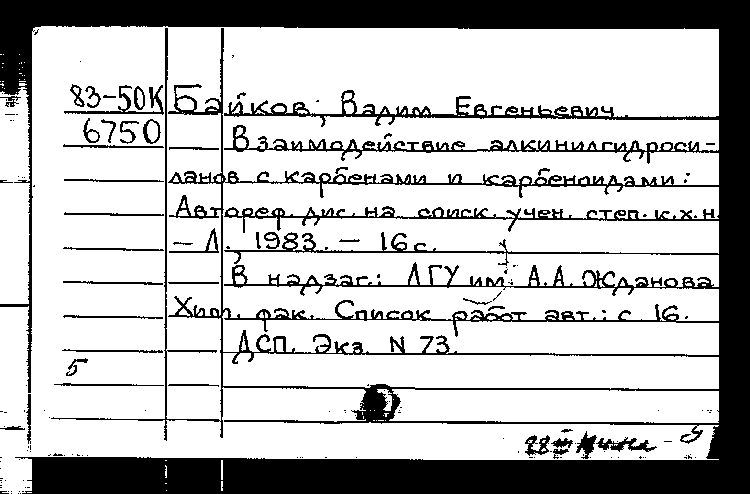 83-50К Байков, Вадим Евгеньевич.
6750 Взаимодействие алкинилгидроси-
ланов с карбенами и карбеноидами:
Автореф. дис. на соиск. учен. степ. к.х.н.
— Л., 1983. — 16 с.
В надзаг.: ЛГУ им. А.А. Жданова
Хим. фак. Список работ авт.: с 16.
ДСП. Экз. N 73.
5